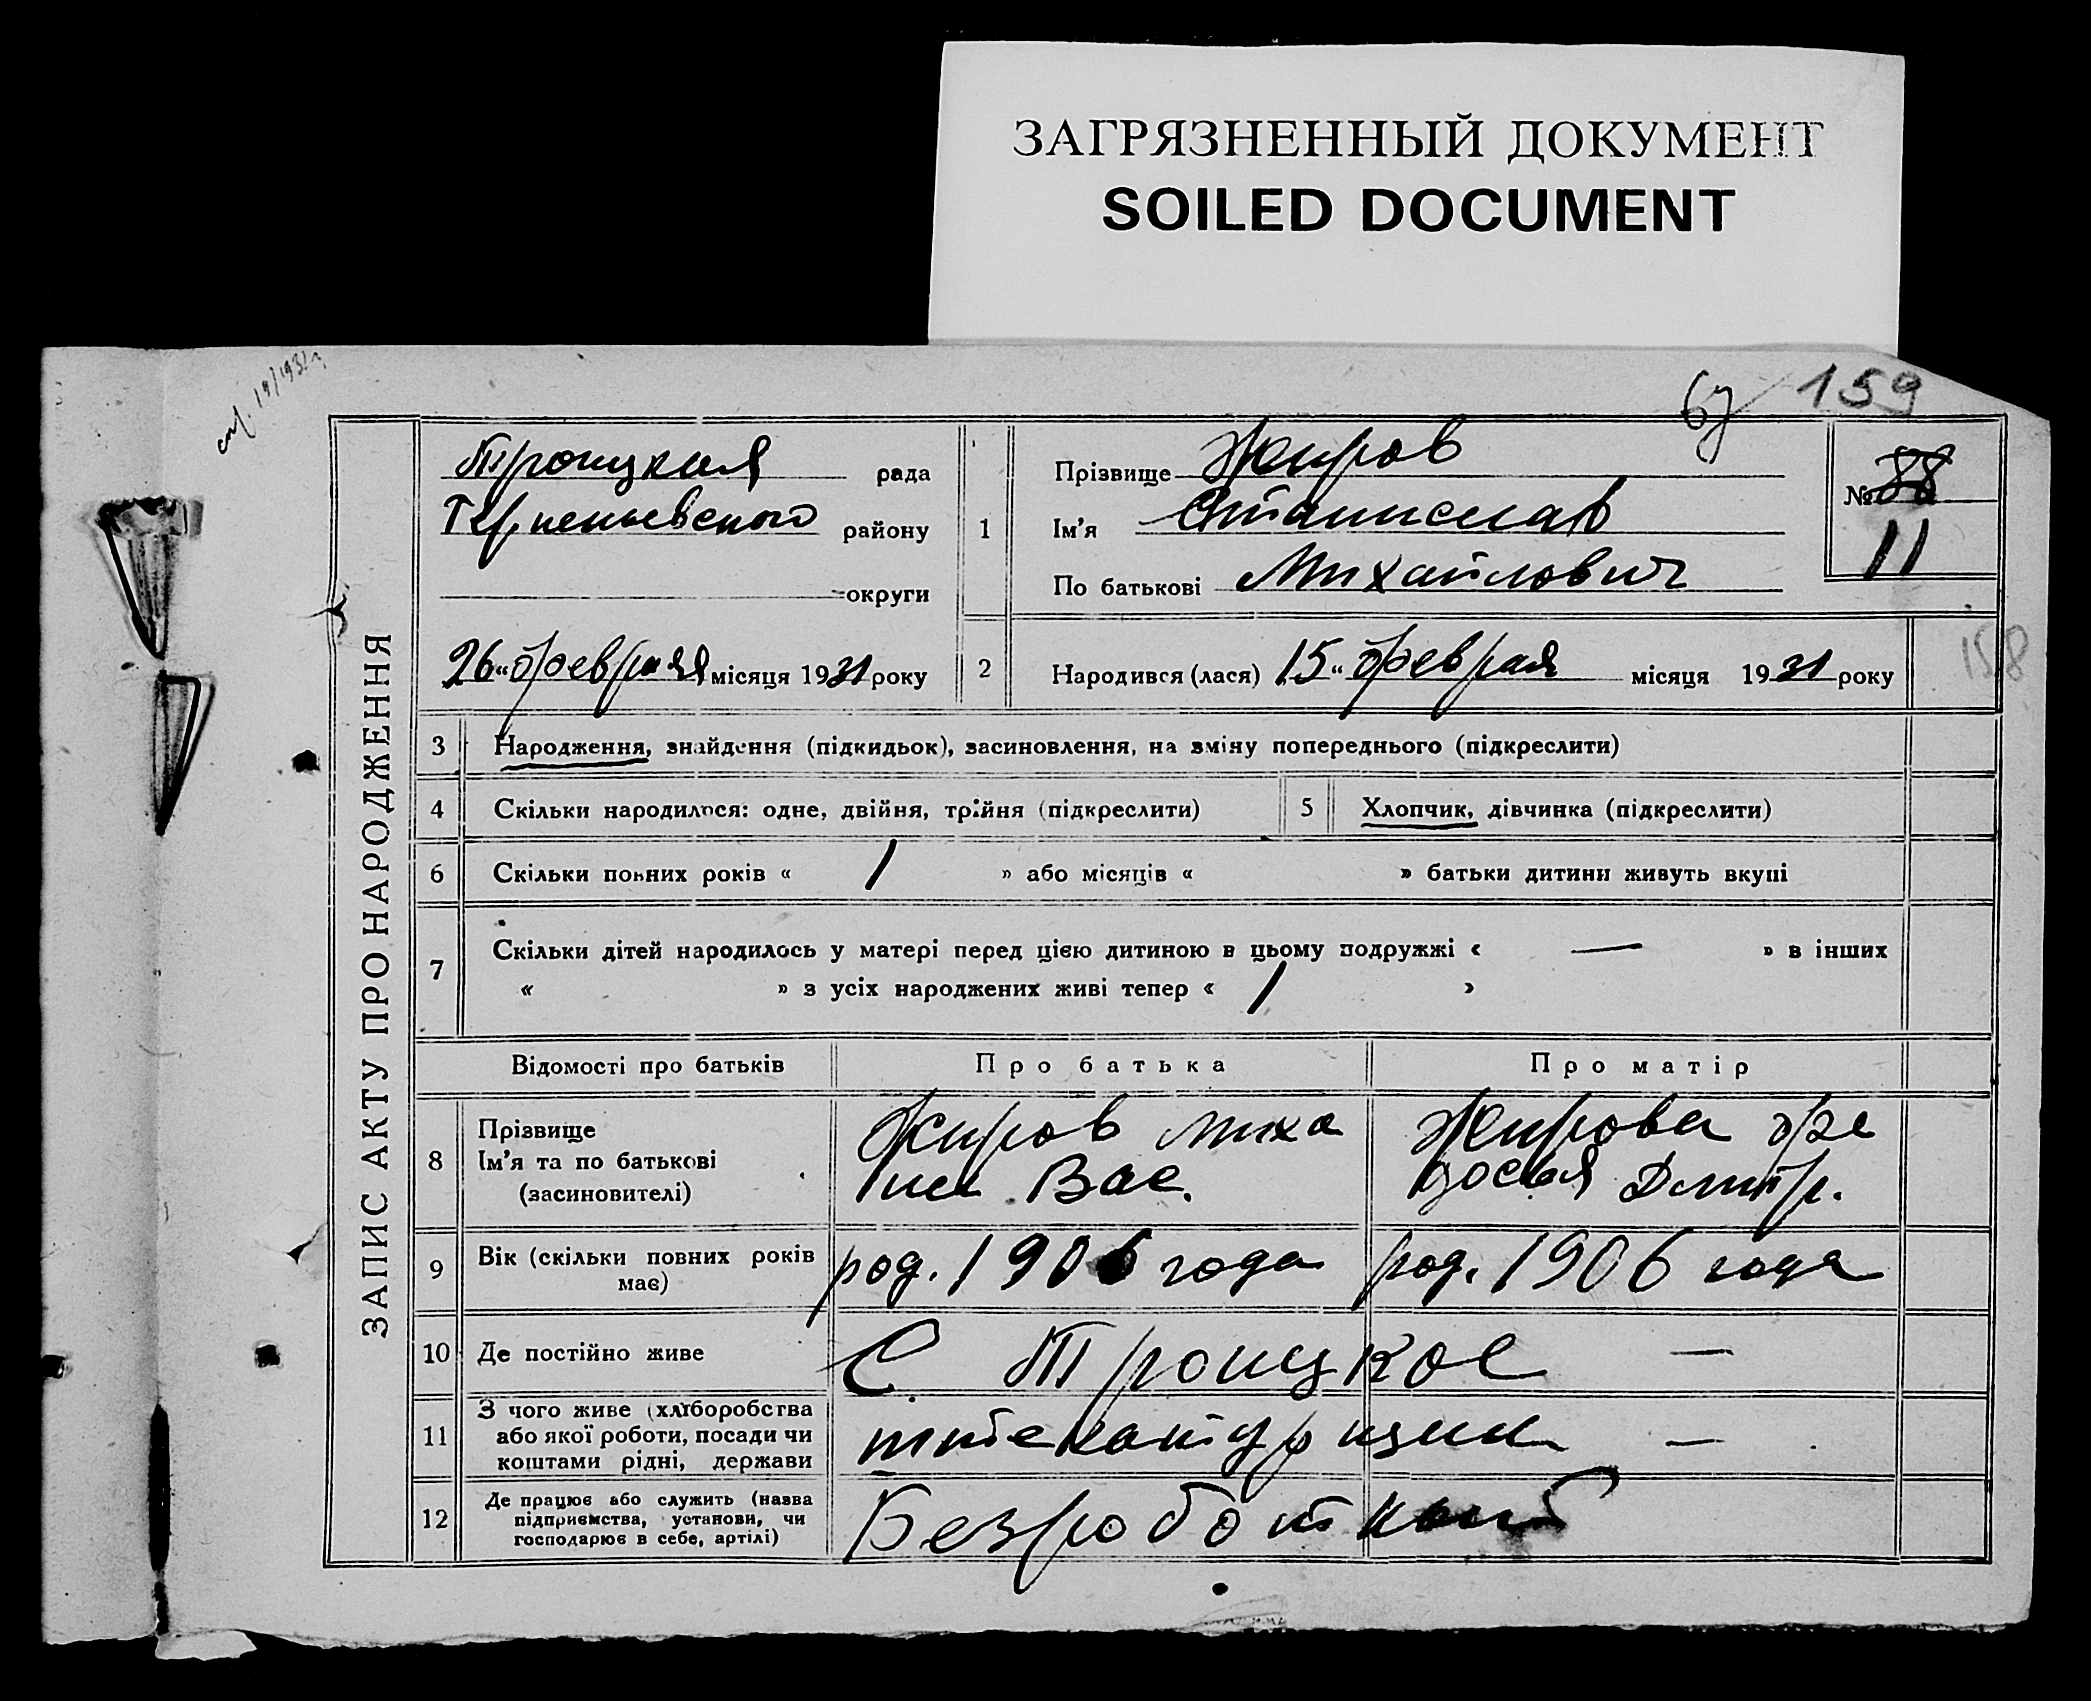 ЗАГРЯЗНЕННЫЙ ДОКУМЕНТ
SOILED DOCUMENT
159
ЗАПИС АКТУ ПРО НАРОДЖЕННЯ
Троицкая рада
района району
округи
26 „ февраля місяця 1931 року
1
Прізвище Жиров
Ім'я Станислав
По батькові Михайлович
№ 88
11
2
Народився (лася) 15 „ февраля місяця 1931 року
158
3 Народження, знайдення (підкидьок), засиновлення, на зміну попереднього (підкреслити)
4 Скільки народилося: одне, двійня, трійня (підкреслити) 5 Хлопчик, дівчинка (підкреслити)
6 Скільки повних років « 1 » або місяців « » батьки дитини живуть вкупі
7 Скільки дітей народилось у матері перед цією дитиною в цьому подружжі « — » в інших
« » з усіх народжених живі тепер « 1 »
Відомості про батьків Про батька Про матір
8 Прізвище
Ім'я та по батькові
(засиновителі)
Жиров Миха
ил Вас.
Жирова Фе
досья Дмитр.
9 Вік (скільки повних років
має)
род. 1906 года род. 1906 года
10 Де постійно живе С Троицкое —
11 З чого живе (хліборобства
або якої роботи, посади чи
коштами рідні, держави
—
12 Де працює або служить (назва
підприємства, установи, чи
господарює в себе, артілі)